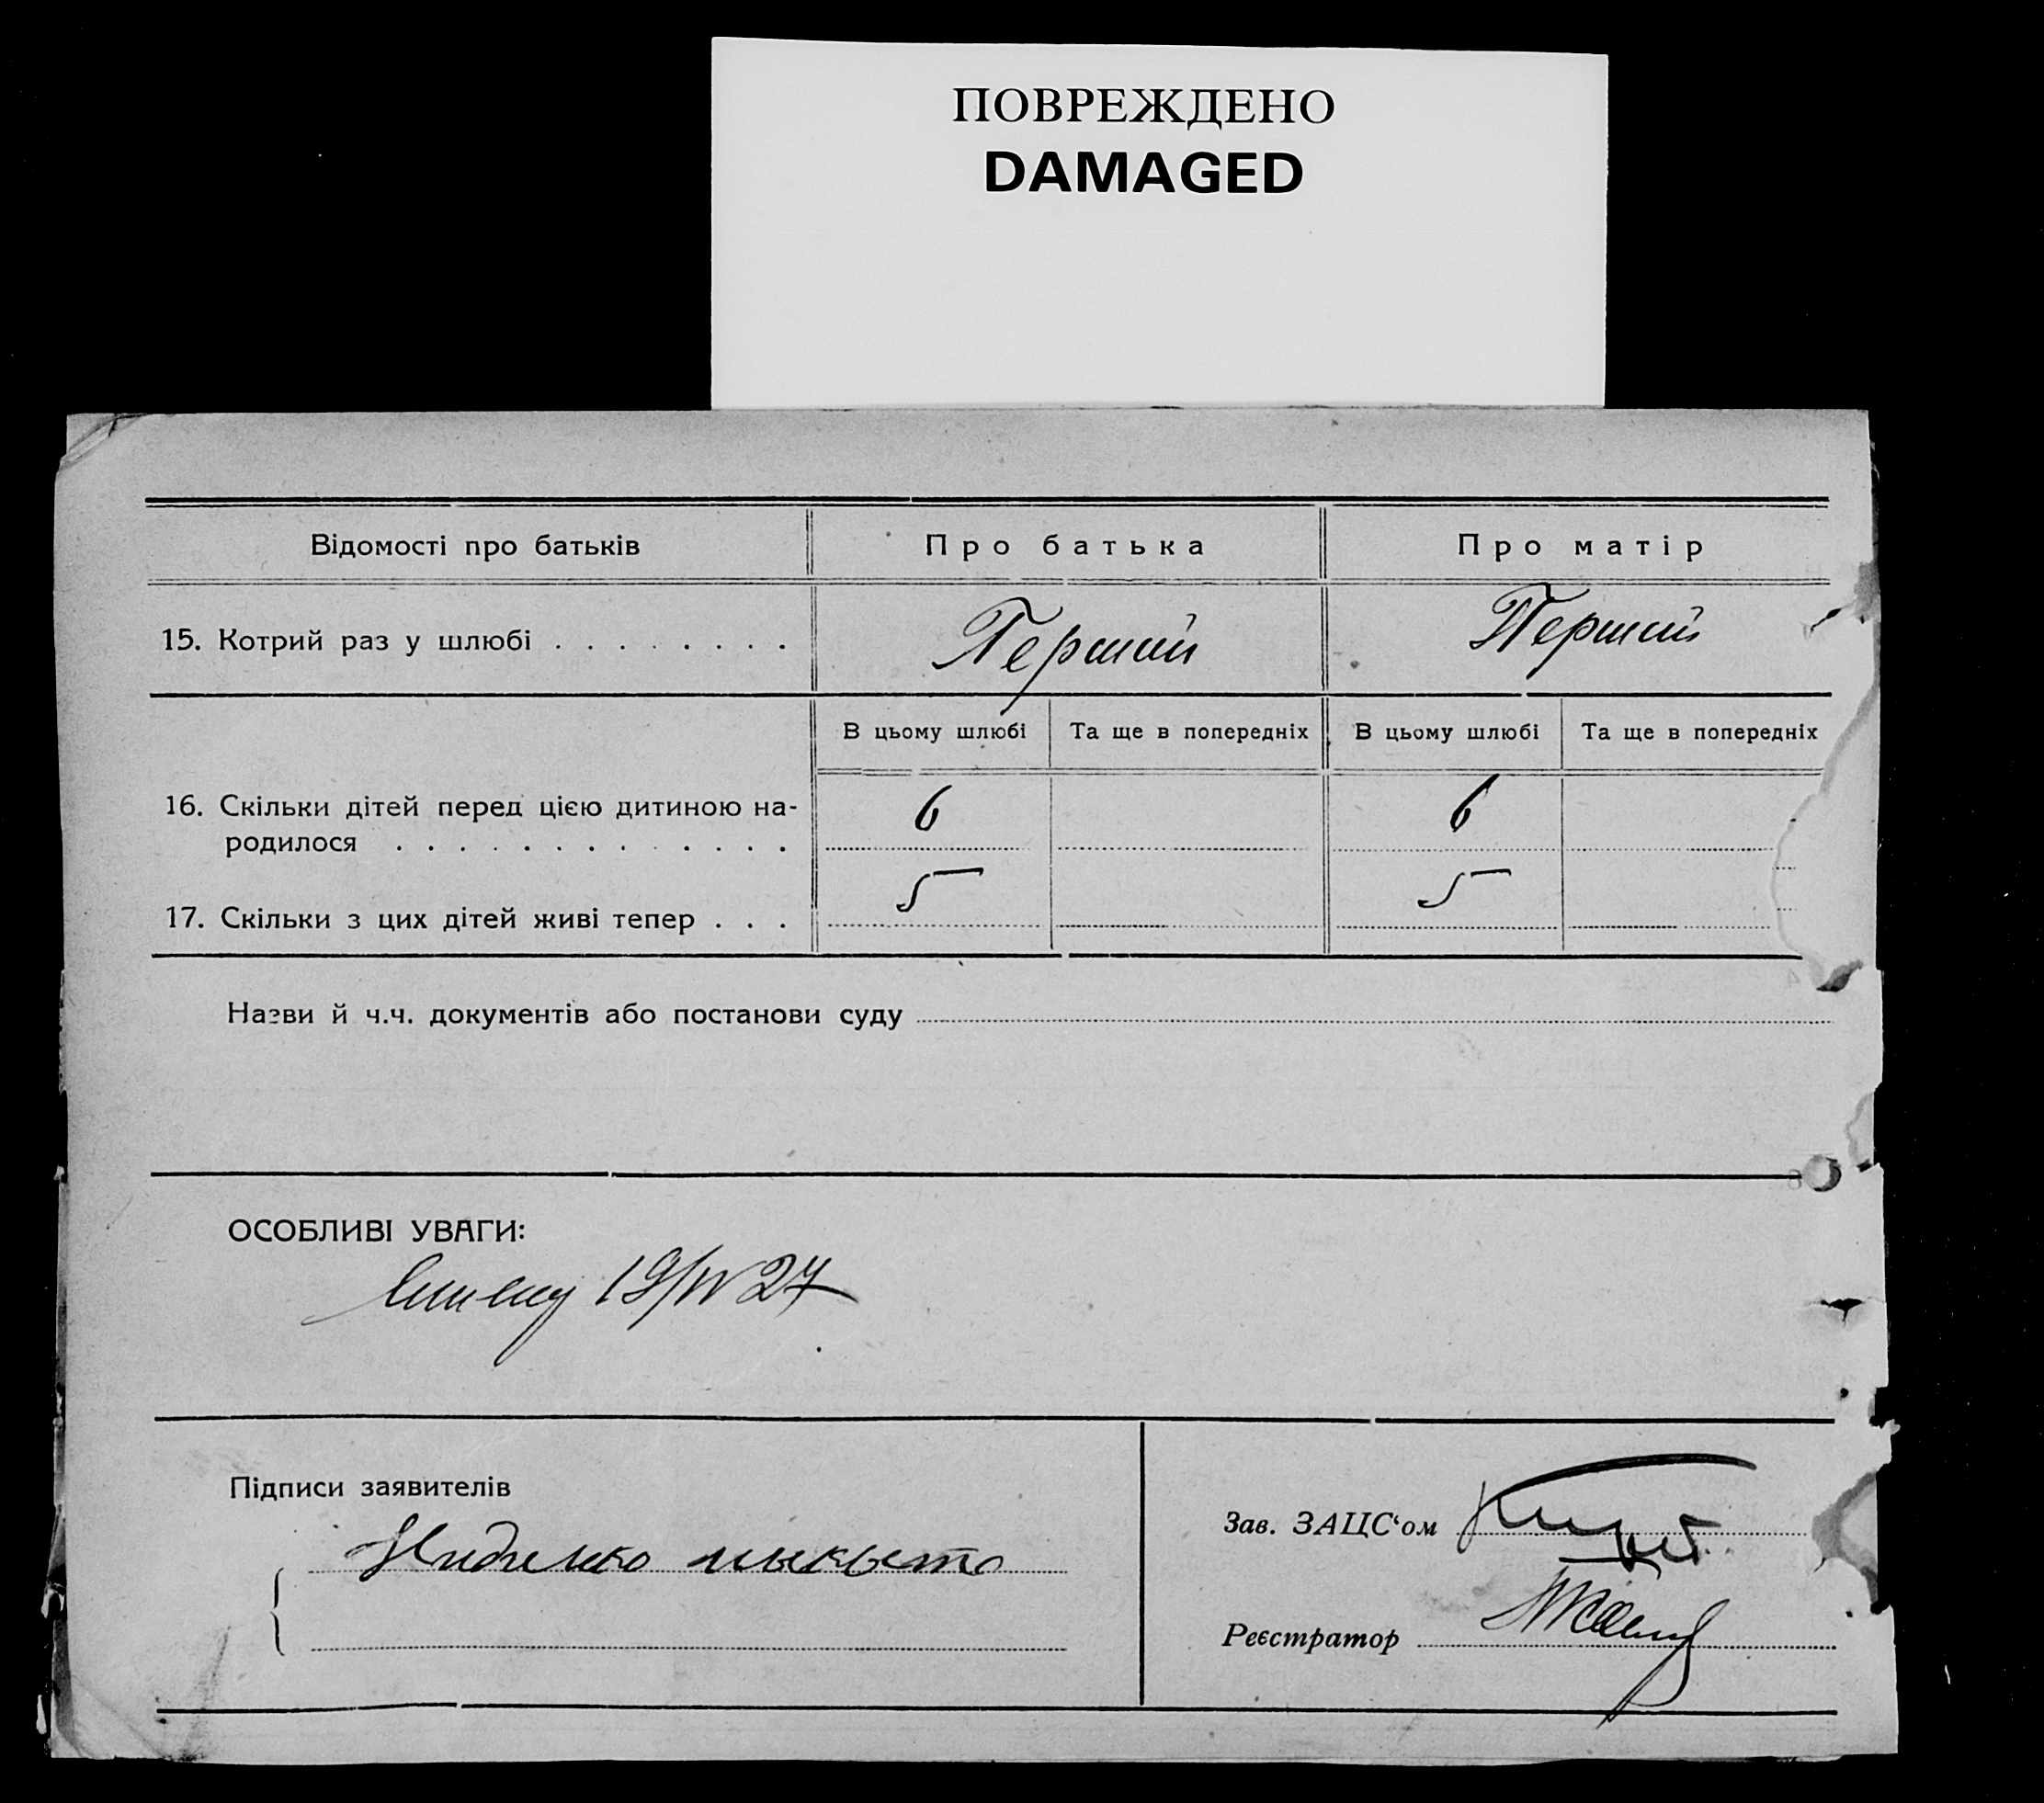 ПОВРЕЖДЕНО
DAMAGED
Відомості про батьків
Про батька
Про матір
15. Котрий раз у шлюбі . . . . . . . .
Перший
Перший
В цьому шлюбі
Та ще в попередніх
В цьому шлюбі
Та ще в попередніх
16. Скільки дітей перед цією дитиною на-
родилося . . . . . . . . . . . . . .
6
6
17. Скільки з цих дітей живі тепер . . .
5
5
Назви й ч.ч. документів або постанови суду
ОСОБЛИВІ УВАГИ:
19/IV 27
Підписи заявителів
мыкыта
Зав. ЗАЦС‘ом
Реєстратор